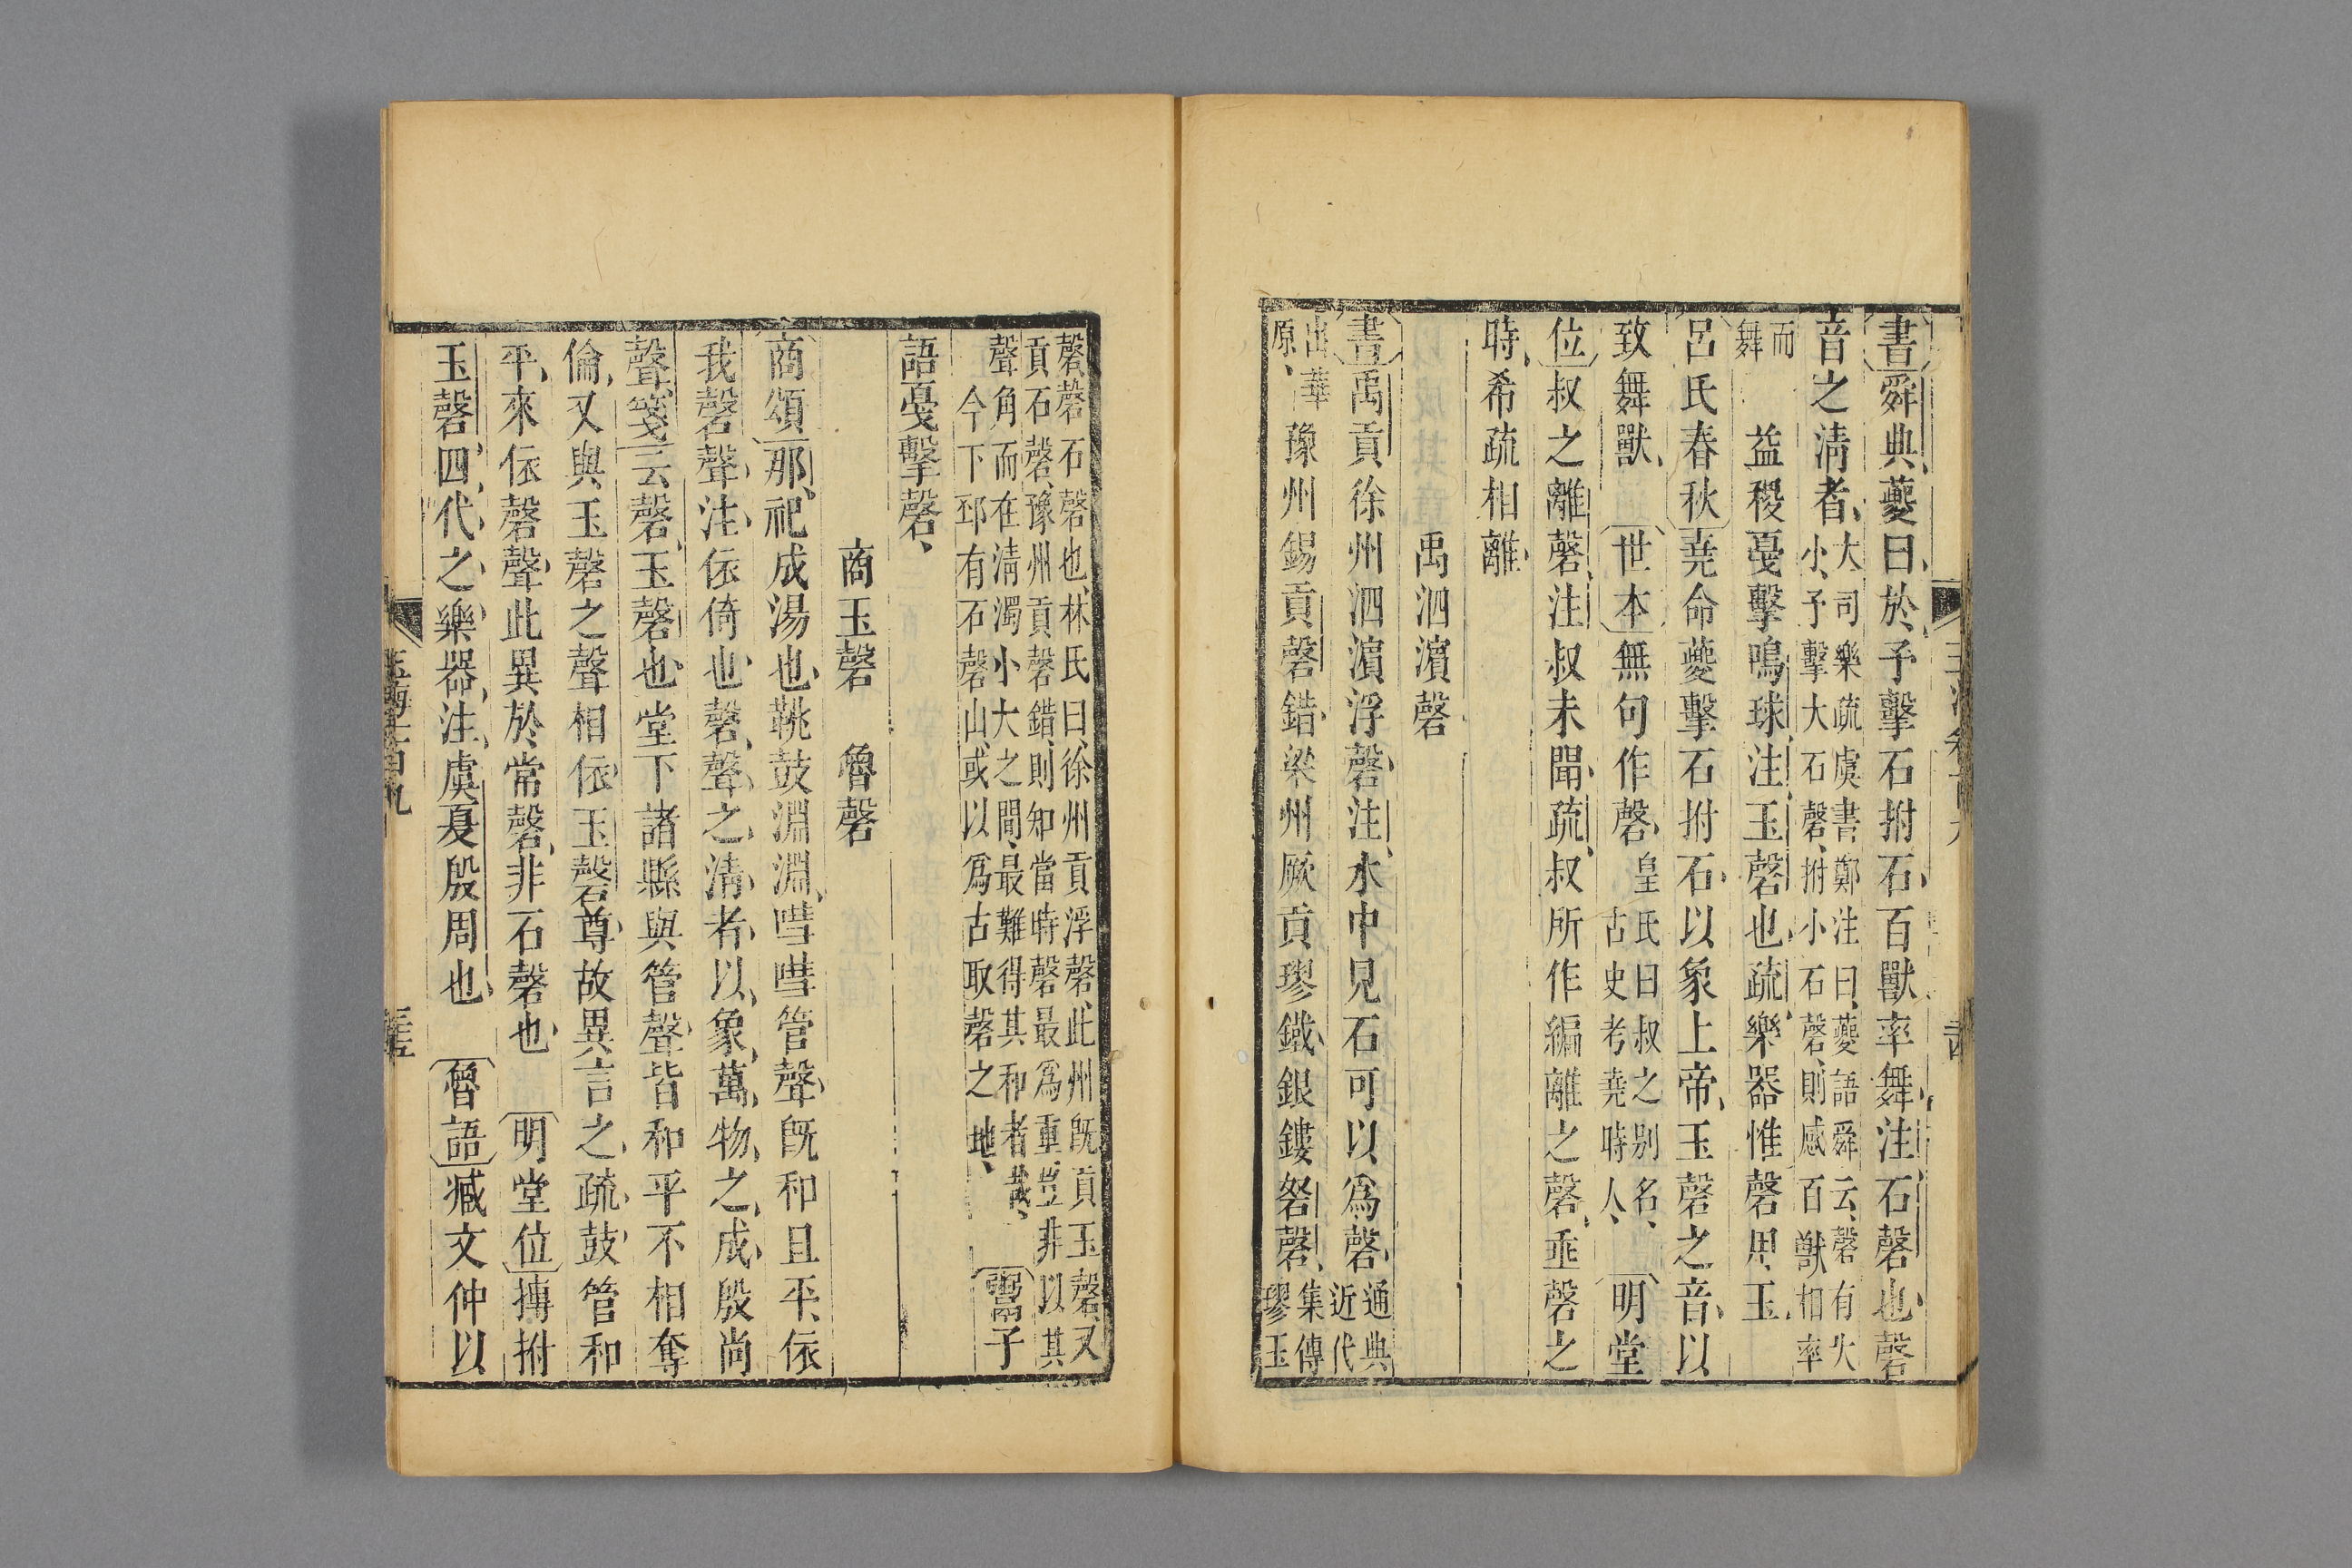 書舜典夔曰於予擊石拊石百獸率舞注石磬也磬
音之淸者大司樂疏虞書鄭注曰夔語舜云磬有大
小予擊大石磬拊小石磬則感百獸相率
而
舞益稷戛擊鳴球注玉磬也疏樂器惟磬用玉
呂氏春秋堯命夔擊石拊石以象上帝玉磬之音以
致舞獸 世本無句作磬皇氏曰叔之別名
古史考堯時人 明堂
位叔之離磬注叔未聞疏叔所作編離之磬垂磬之
時希疏相離
禹泗濵磬
書禹貢徐州泗濵浮磬注水中見石可以爲磬通典
近代
出華
原豫州錫貢磬錯梁州厥貢璆鐵銀鏤砮磬集傳
璆玉
磬磬石磬也林氏曰徐州貢浮磬此州旣貢玉磬又
貢石磬豫州貢磬錯則知當時磬最爲重豈非以其
聲角而在淸濁小大之間最難得其和者哉
今下邳有石磬山或以爲古取磬之地 鬻子
語戛擊磬
商玉磬 魯磬
商頌那祀成湯也鞉鼓淵淵嘒嘒管聲旣和且平依
我磬聲注依倚也磬聲之淸者以象萬物之成殷尚
聲箋云磬玉磬也堂下諸縣與管聲皆和平不相奪
倫又與玉磬之聲相依玉磬尊故異言之疏鼓管和
平來依磬聲此異於常磬非石磬也 明堂位摶拊
玉磬四代之樂器注虞夏殷周也 魯語臧文仲以
玉海卷一百九